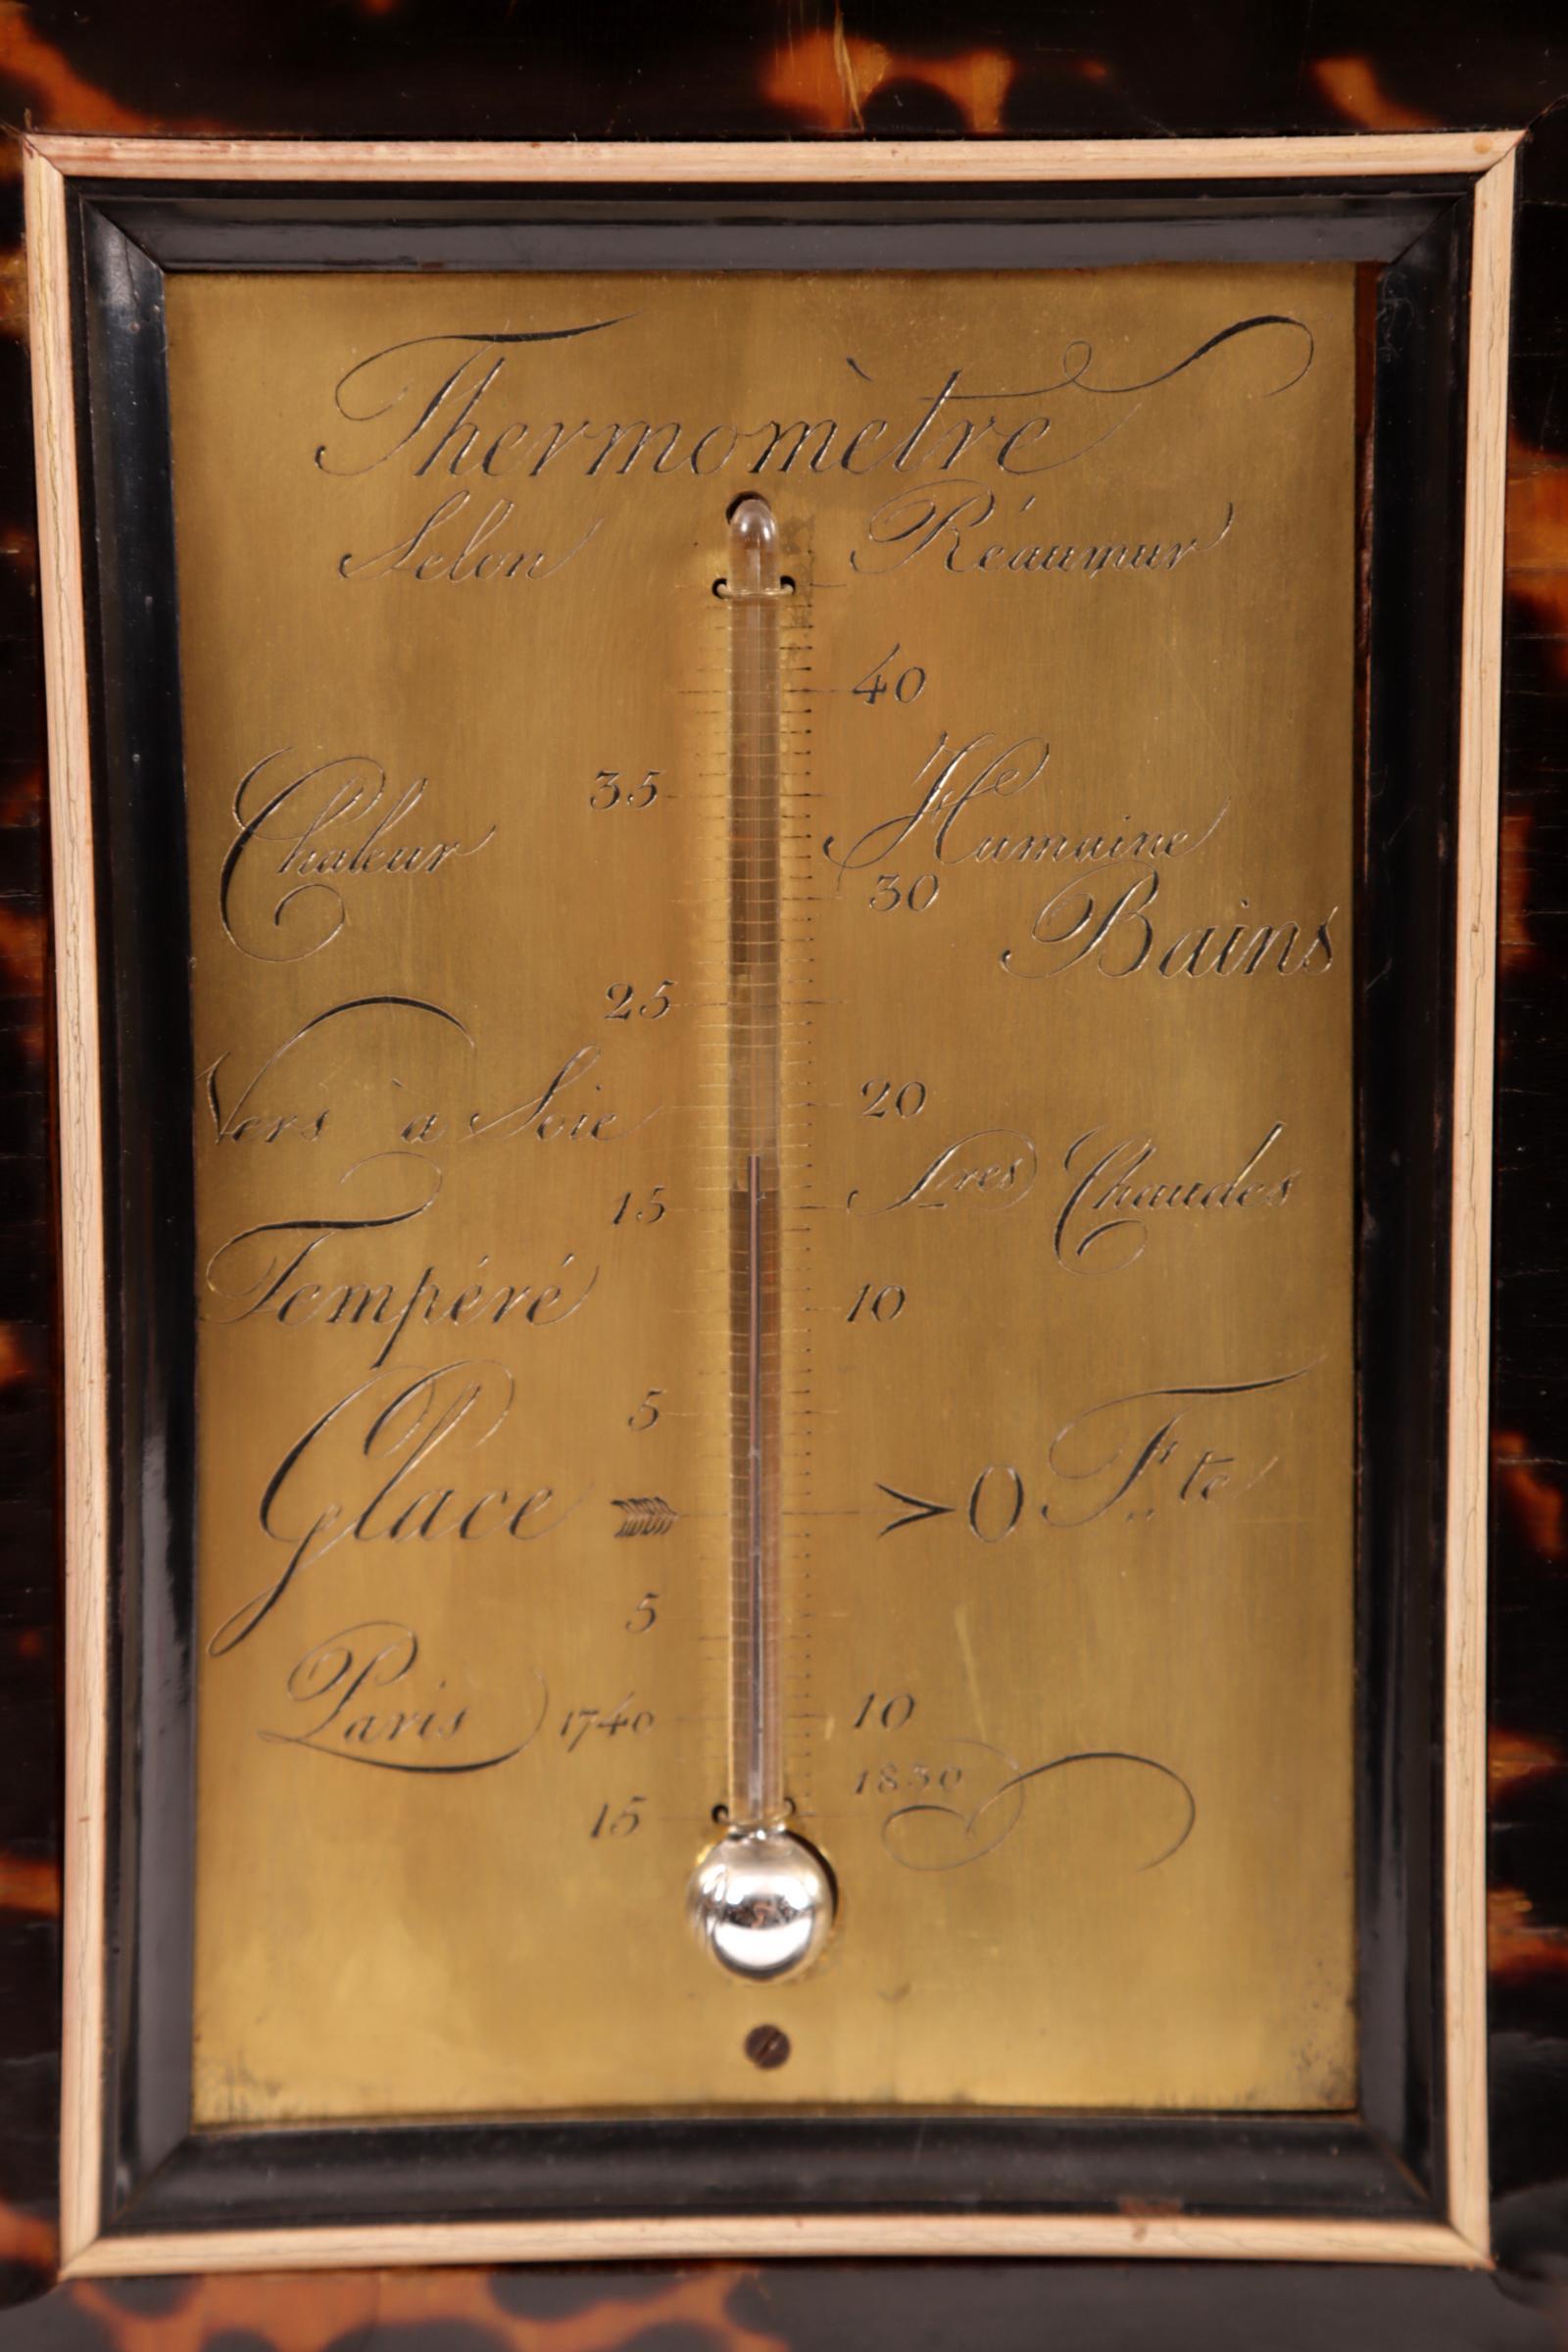 Thermomètre
Selon Réaumur
40
35
Chaleur Humaine
30
Bains
25
Vers à Soie 20
15 Sres Chaudes
Tempéré 10
5
Glace > 0 F.te
5
Paris 1740 10
1830
15